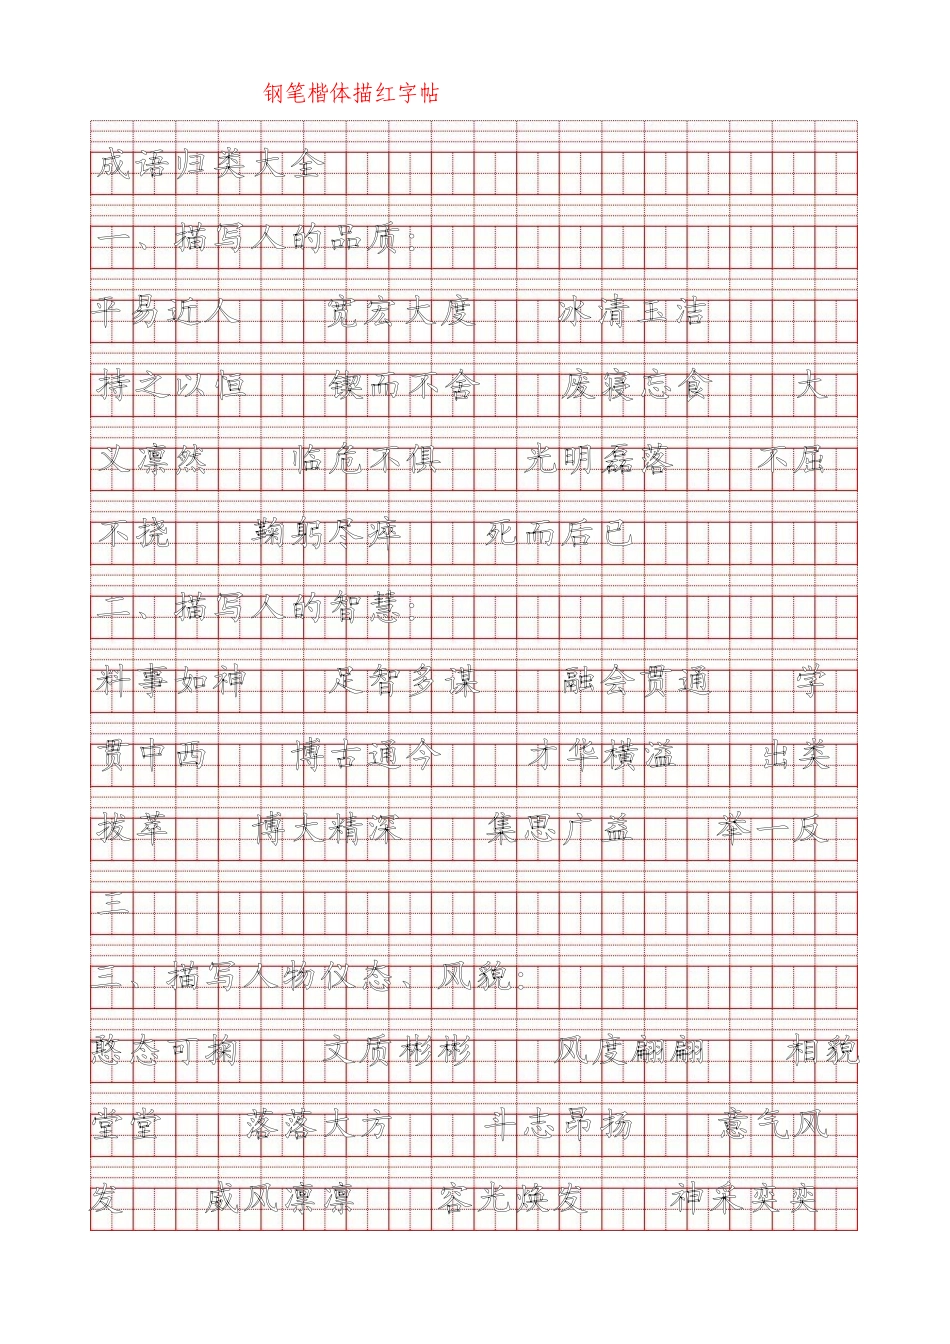 钢笔楷体描红字帖
成语归类大全
一、描写人的品质：
平易近人 宽宏大度 冰清玉洁
持之以恒 锲而不舍 废寝忘食 大
义凛然 临危不俱 光明磊落 不屈
不挠 鞠躬尽瘁 死而后已
二、描写人的智慧：
料事如神 足智多谋 融会贯通 学
贯中西 博古通今 才华横溢 出类
拔萃 博大精深 集思广益 举一反
三
三、描写人物仪态、风貌：
憨态可掬 文质彬彬 风度翩翩 相貌
堂堂 落落大方 斗志昂扬 意气风
发 威风凛凛 容光焕发 神采奕奕